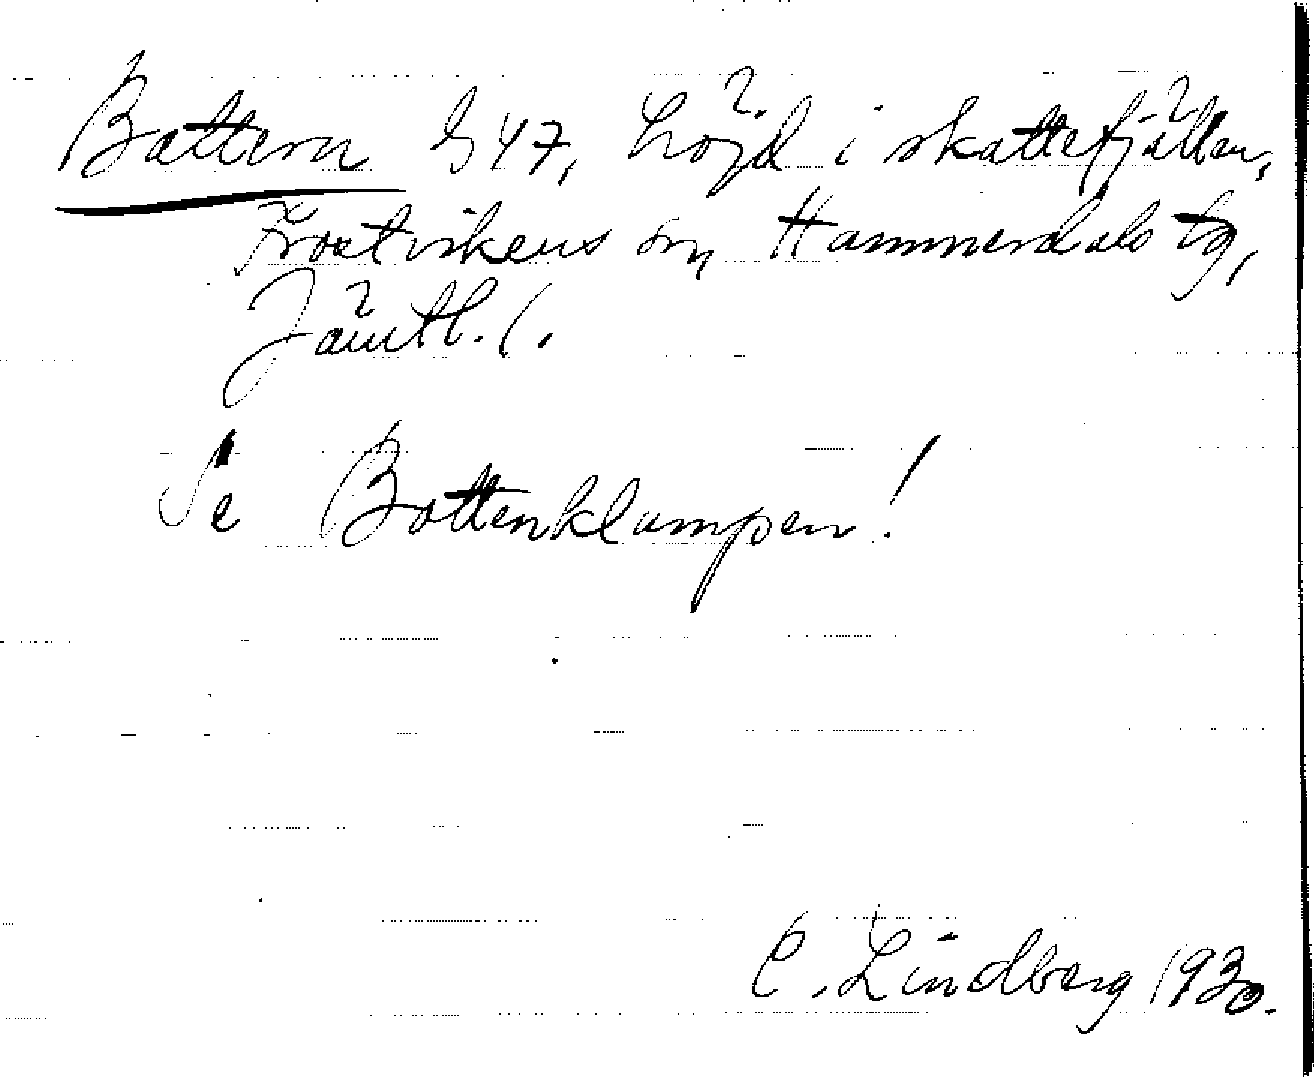 Battern G47, höjd i skattefjällen,
Frostvikens sn, Hammerdals tg,
Jämtl. l.
Se Bottenklumpen!
C. Lindberg 1930.